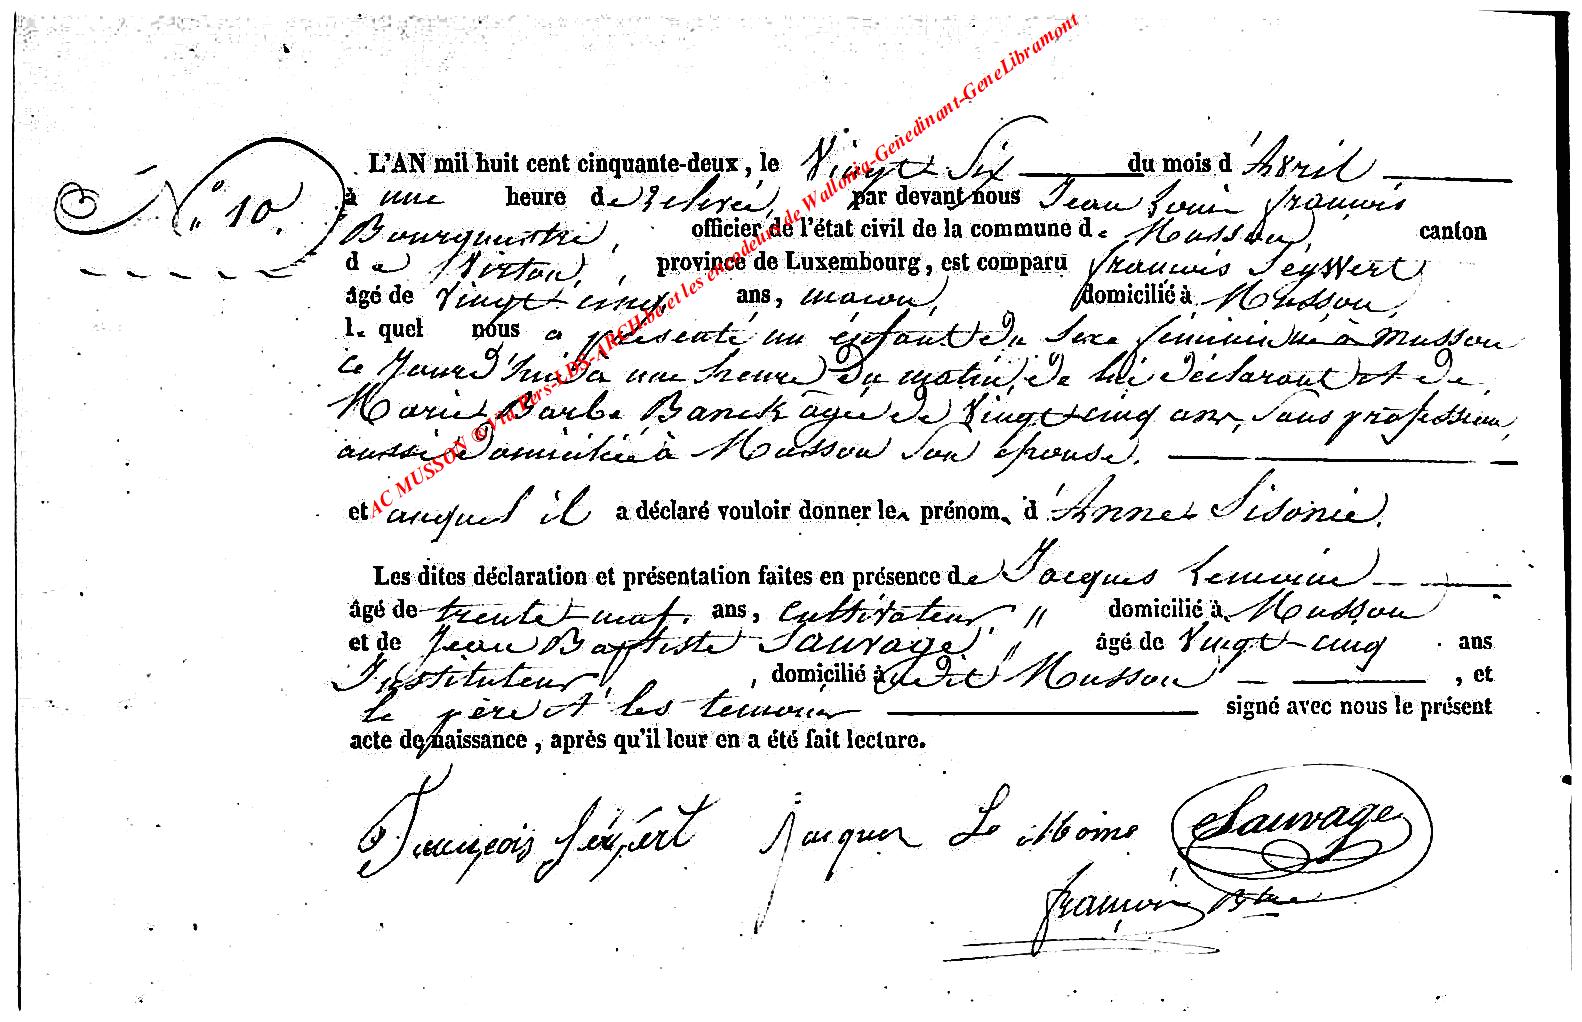 N° 10.
L'AN mil huit cent cinquante-deux, le Vingt Six du mois d'Avril
à une heure de relevée, par devant nous Jean Louis françois
Bourguestre, officier de l'état civil de la commune de Musson, canton
de Virton, province de Luxembourg, est comparu françois Seyvert
âgé de Vingt-cinq ans, maçon, domicilié à Musson,
lequel nous a présenté un énfant du sexe féminin né à Musson
ce Jourd'hui à une heure du matin, de lui déclarant et de
Marie Barbe Banck âgée de Vingt-cinq ans, Sans profession,
aussi domiciliée à Musson Son épouse.
et auquel il a déclaré vouloir donner les prénoms d'Anne Sisonie.
Les dites déclaration et présentation faites en présence de Jacques Lemoine
âgé de trente-neuf ans, Cultivateur, " domicilié à Musson
et de Jean Baptiste Sauvage, " âgé de Vingt-cinq ans
Instituteur, domicilié audit Musson, et
le père et les témoins signé avec nous le présent
acte de naissance, après qu'il leur en a été fait lecture.
François Séÿvert Jacques Le Moine Sauvage
françois Btre
AC MUSSON © Via Pers-LDS-ARCH.be et les encodeurs de Wallonia-Genedinant-GeneLibramont